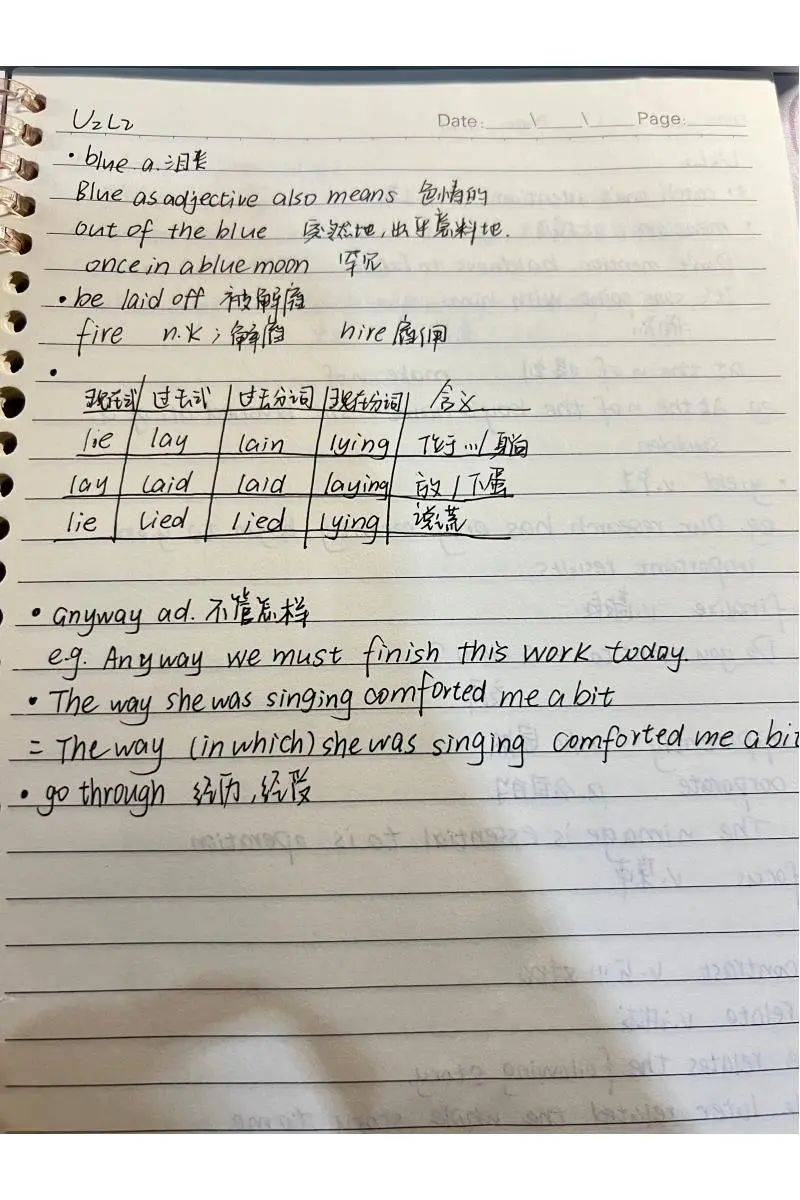 U2L2
Date: \ \ Page:
• blue a. 沮丧
Blue as adjective also means 色情的
out of the blue 突然地,出乎意料地.
once in a blue moon 罕见
• be laid off 被解雇
fire n.火; 解雇 hire 雇佣
•
现在式 过去式 过去分词 现在分词 含义
lie lay lain lying 位于…/躺
lay laid laid laying 放/下蛋
lie lied lied lying 说谎
• anyway ad. 不管怎样
e.g. Anyway we must finish this work today.
• The way she was singing comforted me a bit
= The way (in which) she was singing comforted me a bit
• go through 经历,经受